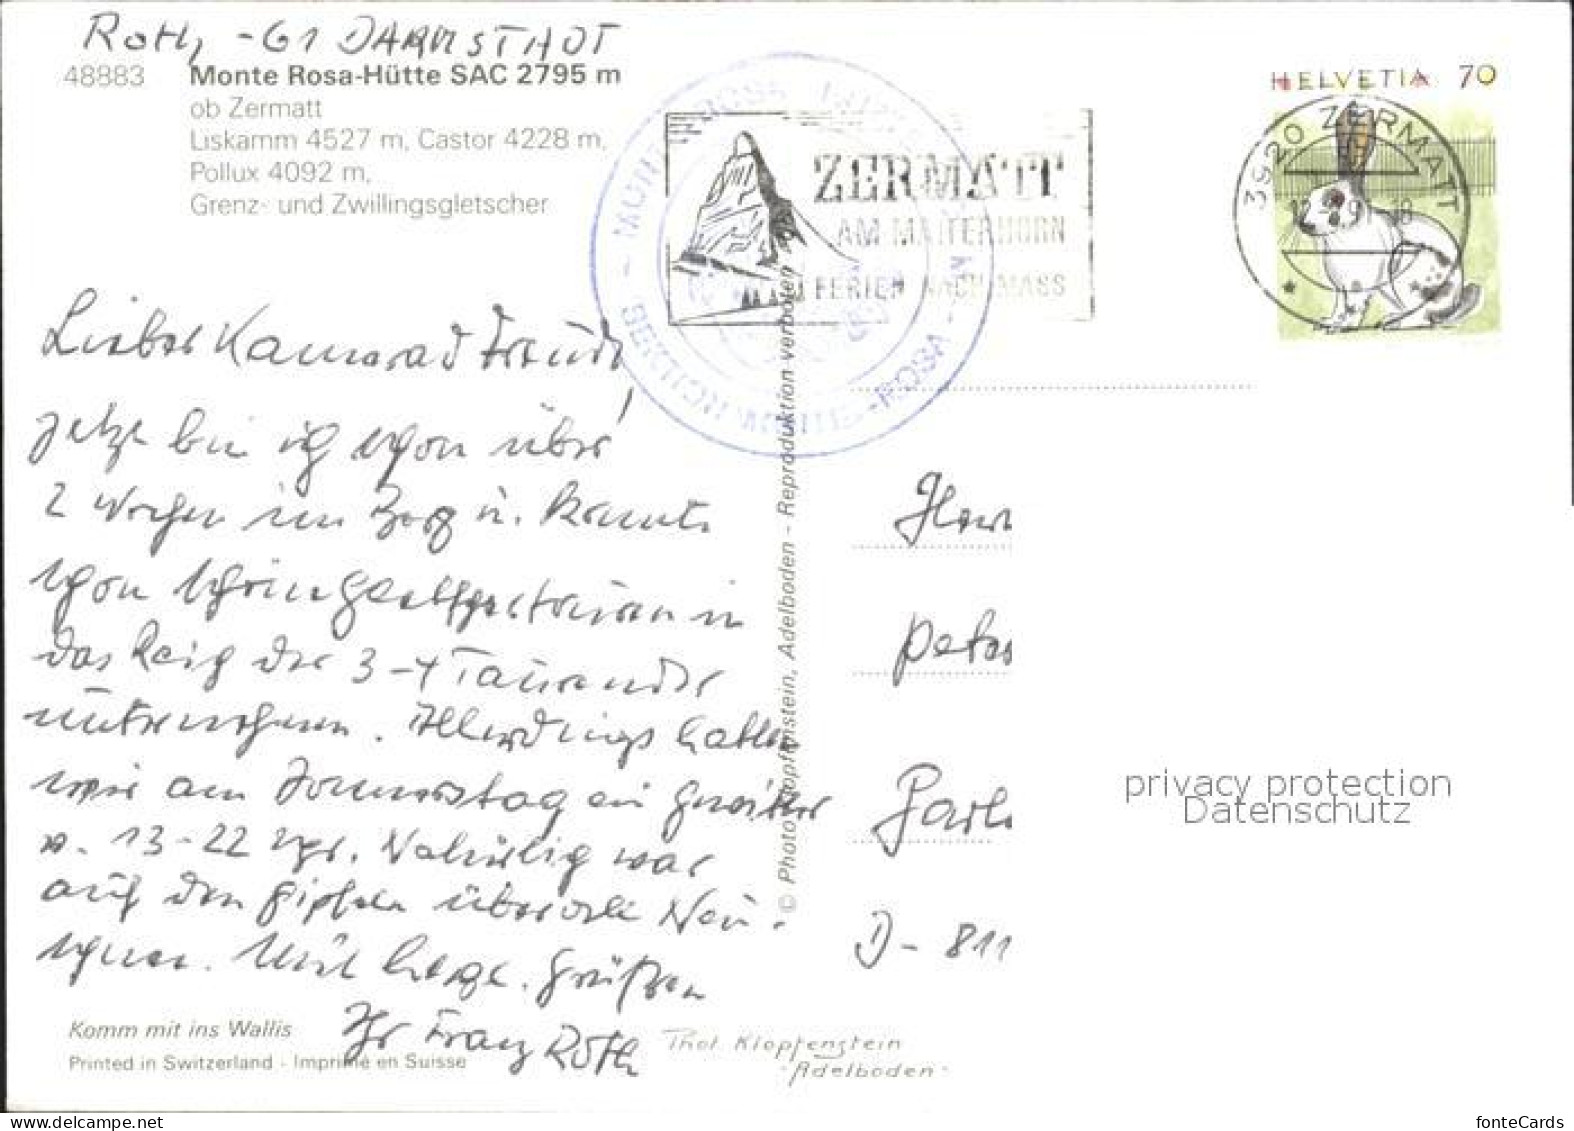 Roth, -61 DARMSTADT
48883 Monte Rosa-Hütte SAC 2795 m
ob Zermatt
Liskamm 4527 m, Castor 4228 m,
Pollux 4092 m,
Grenz- und Zwillingsgletscher
HELVETIA 70
3920 ZERMATT
ZERMATT
AM MATTERHORN
FERIEN NACH MASS
MONTE ROSA
MONTE-ROSA
Lieber Kamerad Freund,
jetzt bin ich schon über
2 Wochen im Berg u. konnte
schon schöne in
das Reich der 3-4 Tausender
unternehmen. Allerdings hatten
wir am Donnerstag ein Gewitter
v. 13-22 Uhr. Natürlich war
auf den Gipfeln überall Neu-
schnee. Mit herzl. Grüßen
Ihr Franz Roth
Komm mit ins Wallis
Printed in Switzerland - Imprimé en Suisse
Phot. Klopfenstein
Adelboden
© Photo Klopfenstein, Adelboden - Reproduktion verboten
Herr
Peter
D- 811
privacy protection
Datenschutz
www.delcampe.net
fonteCards